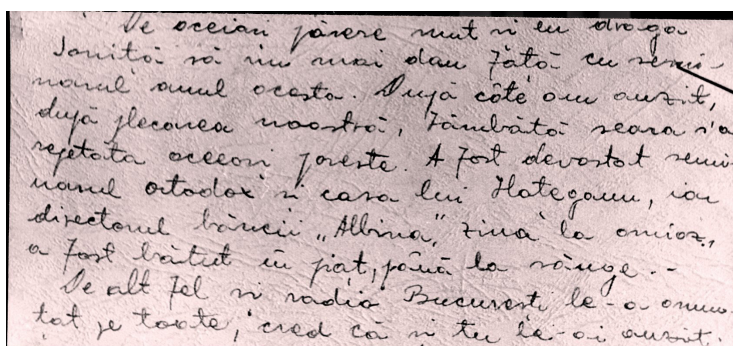 De aceiasi părere sunt si eu draga
Ionită să nu mai dau fată cu semi-
narul anul acesta. După câte am auzit,
după plecarea noastră, Sâmbătă seara s'a
repetata aceeasi poveste. A fost devastat semi-
narul ortodox si casa lui Hateganu, iar
directorul băncii „Albina", ziua la amiaz,
a fost bătut în pat, până la sânge.-
De alt fel si radio Bucuresti le-a anun-
tat pe toate, cred că si tu le-ai auzit.